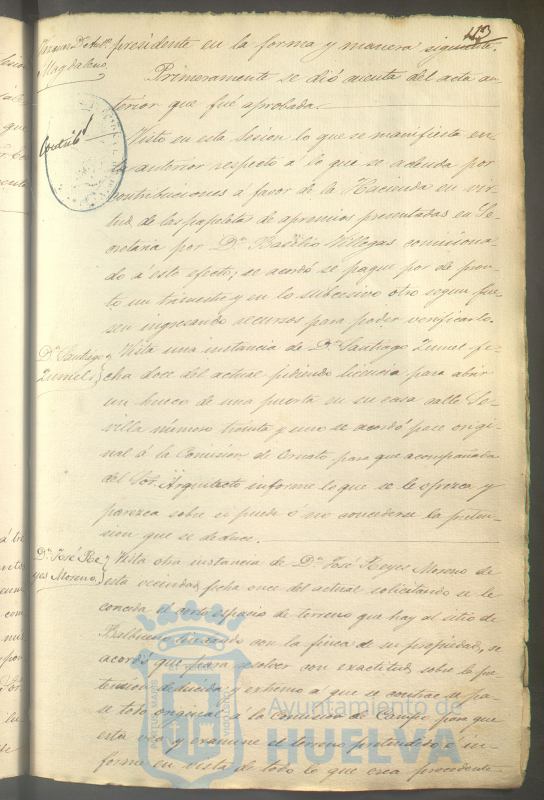 43
presidente en la forma y manera siguiente.
Magdaleno
Primeramente se dió cuenta del acta an-
terior que fué aprobada.
Visto en esta Sesion lo que se manifiesta en
la anterior respecto á lo que se adeuda por
contribuciones á favor de la Hacienda en vir-
tud de las papeletas de apremios presentadas en Se-
cretaria por Dn. Basilio Villegas comisiona-
do á este efecto; se acordó se pague por de pron-
to un trimestre y en lo subcesivo otro segun fue-
sen ingresando recursos para poder verificarlo.
Dn. Santiago
Zumel
Vista una instancia de Dn. Santiago Zumel fe-
cha doce del actual pidiendo licencia para abrir
un hueco de una puerta en su casa calle Se-
villa número treinta y uno se acordó pase origi-
nal á la Comision de Ornato para que acompañada
del Sor. Arquitecto informe lo que se le ofrezca y
parezca sobre si puede ó no concederse la preten-
sion que se deduce.
Dn. José Re-
yes Moreno
Vista otra instancia de Dn. José Reyes Moreno de
esta vecindad, fecha once del actual solicitando se le
conceda el corto espacio de terreno que hay al sitio de
con la finca de su propiedad, se
acordó que para resolver con exactitud sobre la pre-
tension deducida y extremo á que se contrae se pa-
se todo original á la Comision de Campo para que
esta vea y examine el terreno pretendido é in-
forme en vista de todo lo que crea procedente
Ayuntamiento de
HUELVA